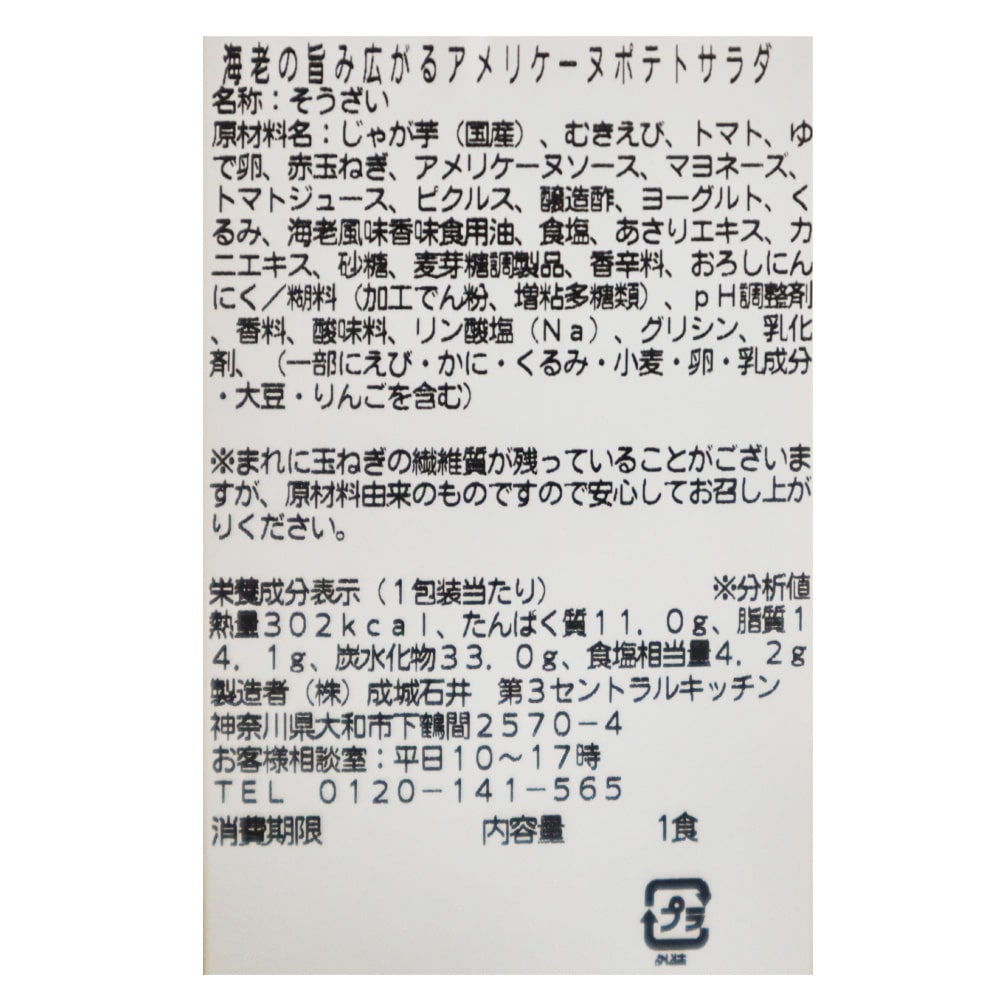 海老の旨み広がるアメリケーヌポテトサラダ
名称：そうざい
原材料名：じゃが芋（国産）、むきえび、トマト、ゆ
で卵、赤玉ねぎ、アメリケーヌソース、マヨネーズ、
トマトジュース、ピクルス、醸造酢、ヨーグルト、く
るみ、海老風味香味食用油、食塩、あさりエキス、カ
ニエキス、砂糖、麦芽糖調製品、香辛料、おろしにん
にく／糊料（加工でん粉、増粘多糖類）、ｐＨ調整剤
、香料、酸味料、リン酸塩（Ｎａ）、グリシン、乳化
剤、（一部にえび・かに・くるみ・小麦・卵・乳成分
・大豆・りんごを含む）
※まれに玉ねぎの繊維質が残っていることがございま
すが、原材料由来のものですので安心してお召し上が
りください。
栄養成分表示（１包装当たり）　※分析値
熱量３０２ｋｃａｌ、たんぱく質１１．０ｇ、脂質１
４．１ｇ、炭水化物３３．０ｇ、食塩相当量４．２ｇ
製造者（株）成城石井　第３セントラルキッチン
神奈川県大和市下鶴間２５７０－４
お客様相談室：平日１０～１７時
ＴＥＬ　０１２０－１４１－５６５
消費期限　内容量　１食
プラ
外装